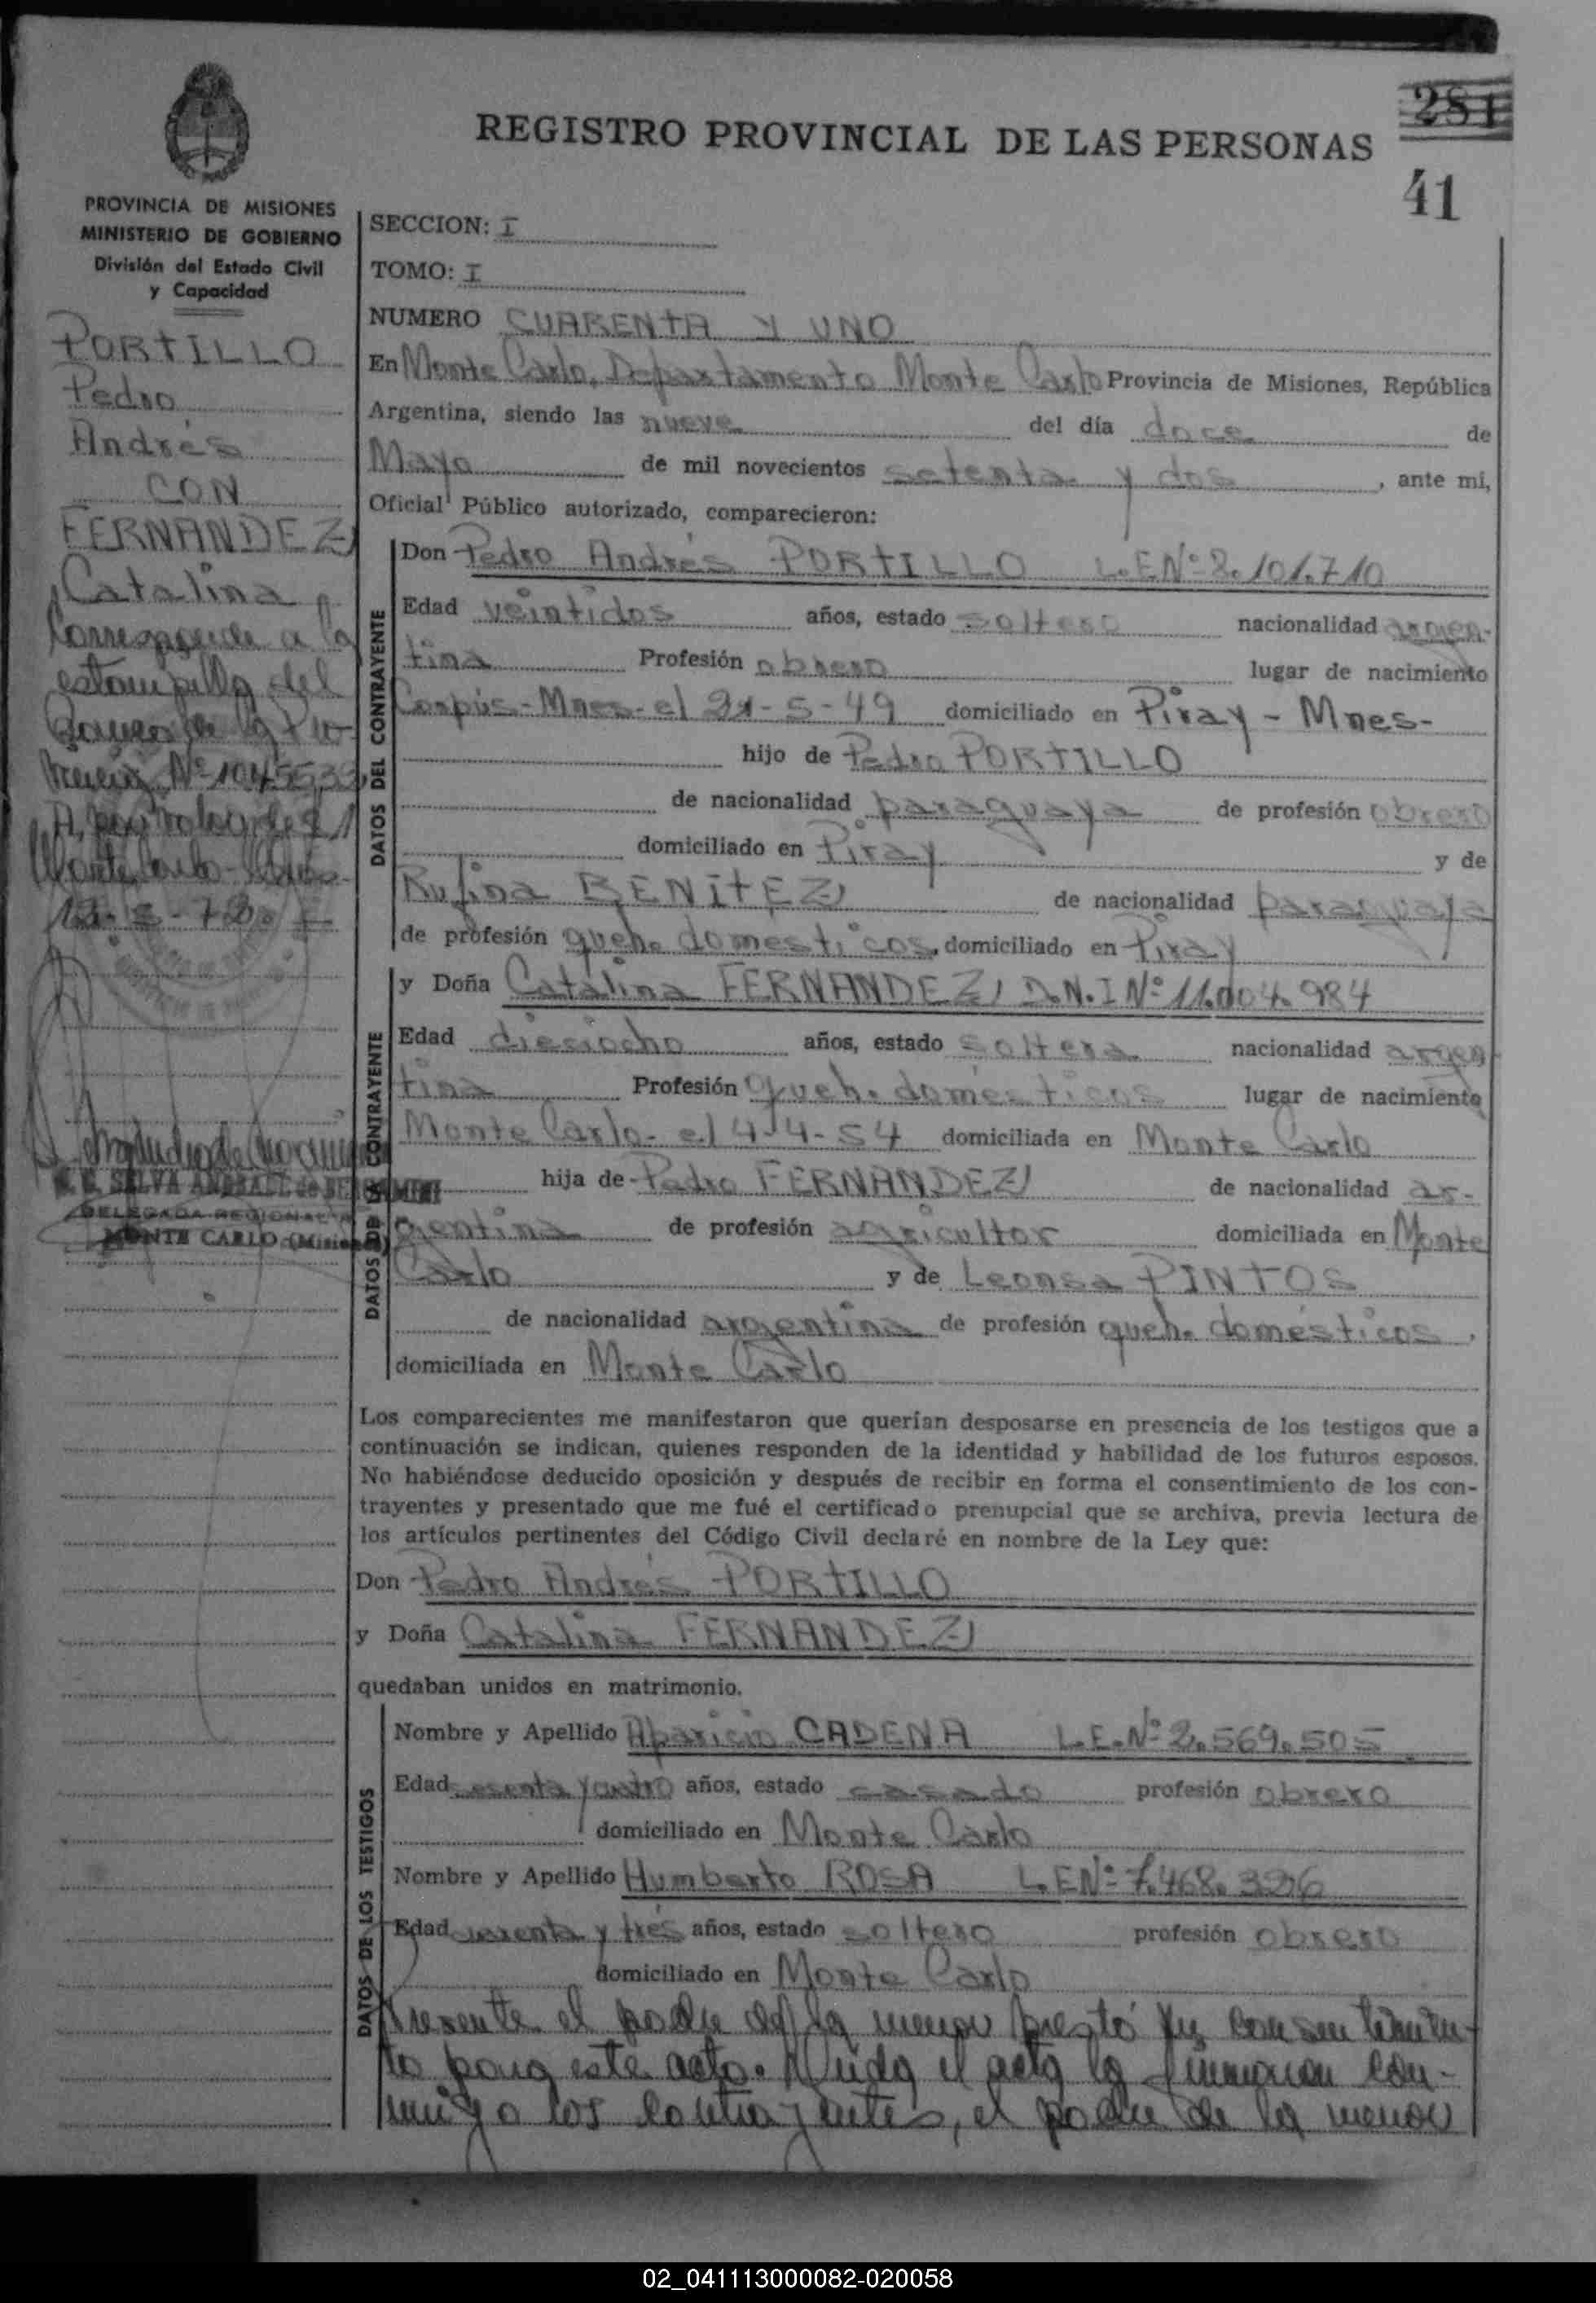 REGISTRO PROVINCIAL DE LAS PERSONAS
281
41
PROVINCIA DE MISIONES
MINISTERIO DE GOBIERNO
División del Estado Civil
y Capacidad
PORTILLO
Pedro
Andrés
CON
FERNANDEZ
Catalina
Corresponde a la
estampilla del
Banco de la Pro-
vincia Nº 1045533
A, por valor de $ 1
Monte Carlo - Mnes.
12-5-72
DELEGADA REGIONAL
MONTE CARLO (Misiones)
SECCION: I
TOMO: I
NUMERO CUARENTA Y UNO
En Monte Carlo, Departamento Monte Carlo Provincia de Misiones, República
Argentina, siendo las nueve del día doce de
Mayo de mil novecientos setenta y dos, ante mi,
Oficial Público autorizado, comparecieron:
DATOS DEL CONTRAYENTE
Don Pedro Andrés PORTILLO L.E Nº 8.101.710
Edad veintidos años, estado soltero nacionalidad argen-
tina Profesión obrero lugar de nacimiento
Corpús-Mnes-el 21-5-49 domiciliado en Piray - Mnes-
hijo de Pedro PORTILLO
de nacionalidad paraguaya de profesión obrero
domiciliado en Piray y de
Rufina BENITEZ de nacionalidad paraguaya
de profesión queh. domesticos, domiciliado en Piray
DATOS DE CONTRAYENTE
y Doña Catalina FERNANDEZ D.N.I Nº 11.004.984
Edad dieciocho años, estado soltera nacionalidad argen
tina Profesión queh. domésticos lugar de nacimiento
Monte Carlo- el 4-4-54 domiciliada en Monte Carlo
hija de Pedro FERNANDEZ de nacionalidad ar-
gentina de profesión agricultor domiciliada en Monte
Carlo y de Leonsa PINTOS
de nacionalidad argentina de profesión queh. domésticos,
domiciliada en Monte Carlo
Los comparecientes me manifestaron que querían desposarse en presencia de los testigos que a
continuación se indican, quienes responden de la identidad y habilidad de los futuros esposos.
No habiéndose deducido oposición y después de recibir en forma el consentimiento de los con-
trayentes y presentado que me fué el certificado prenupcial que se archiva, previa lectura de
los artículos pertinentes del Código Civil declaré en nombre de la Ley que:
Don Pedro Andrés PORTILLO
y Doña Catalina FERNANDEZ
quedaban unidos en matrimonio.
DATOS DE LOS TESTIGOS
Nombre y Apellido Aparicio CADENA L.E.Nº 2.569.505
Edad sesenta y cuatro años, estado casado profesión obrero
domiciliado en Monte Carlo
Nombre y Apellido Humberto ROSA L.E Nº 7.468.326
Edad y tres años, estado soltero profesión obrero
domiciliado en Monte Carlo
Presente el padre de la menor prestó su consentimien-
to para este acto. Leida el acta la firmaron con-
migo los contrayentes, el padre de la menor
02_041113000082-020058